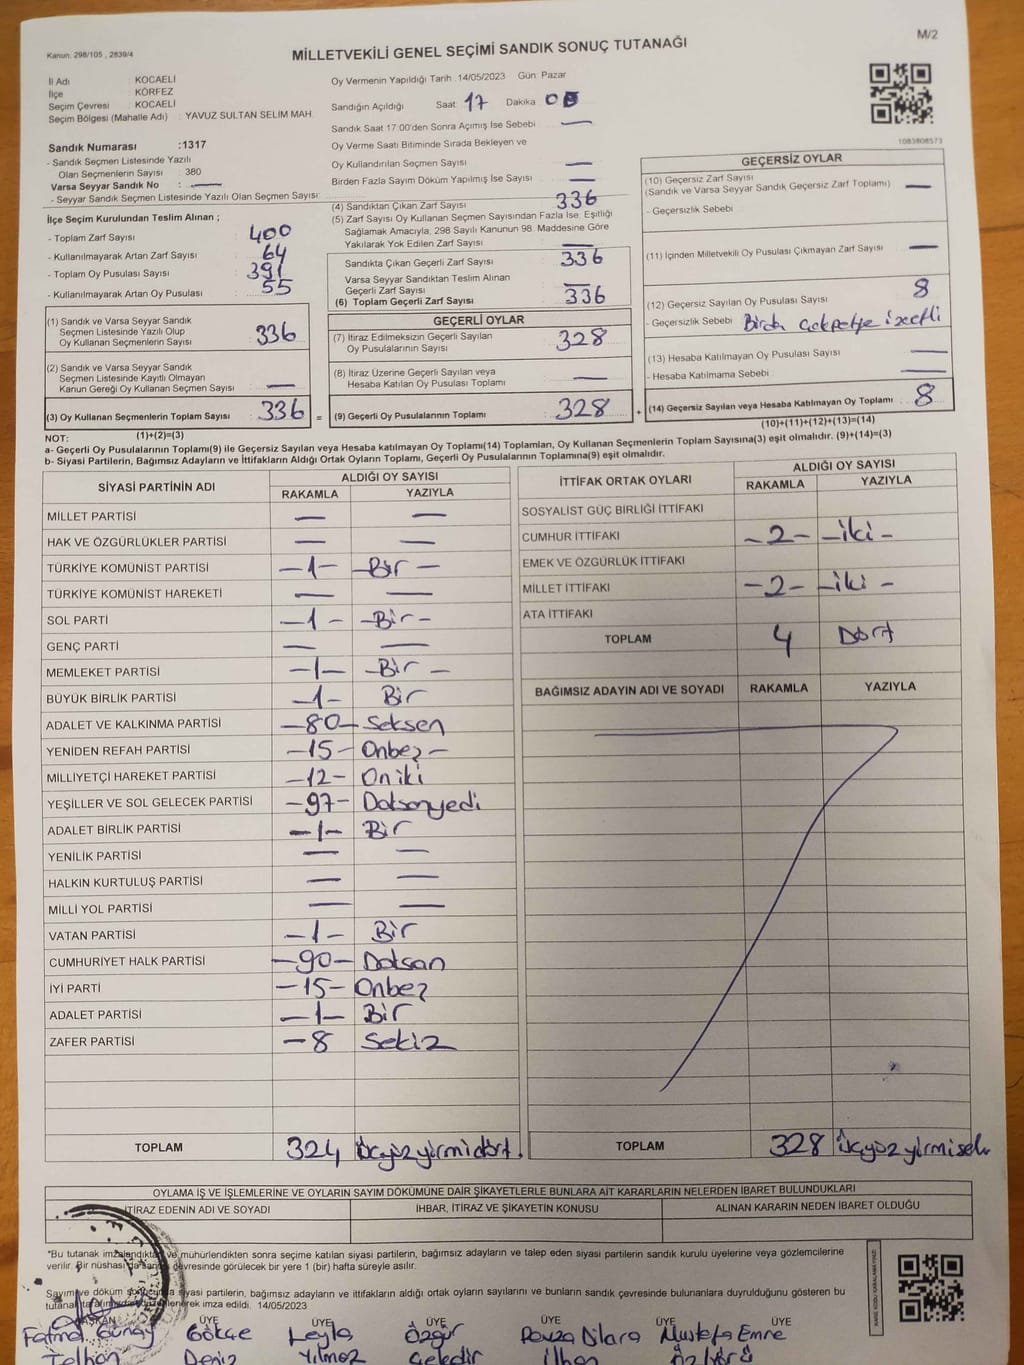 M/2
Kanun: 298/105 , 2839/4
MİLLETVEKİLİ GENEL SEÇİMİ SANDIK SONUÇ TUTANAĞI
İl Adı : KOCAELİ
İlçe : KÖRFEZ
Seçim Çevresi : KOCAELİ
Seçim Bölgesi (Mahalle Adı) : YAVUZ SULTAN SELIM MAH.
Sandık Numarası :1317
- Sandık Seçmen Listesinde Yazılı
Olan Seçmenlerin Sayısı : 380
Varsa Seyyar Sandık No : —
- Seyyar Sandık Seçmen Listesinde Yazılı Olan Seçmen Sayısı:
İlçe Seçim Kurulundan Teslim Alınan ;
- Toplam Zarf Sayısı : 400
- Kullanılmayarak Artan Zarf Sayısı : 64
- Toplam Oy Pusulası Sayısı : 391
- Kullanılmayarak Artan Oy Pusulası : 55
(1) Sandık ve Varsa Seyyar Sandık
Seçmen Listesinde Yazılı Olup
Oy Kullanan Seçmenlerin Sayısı : 336
(2) Sandık ve Varsa Seyyar Sandık
Seçmen Listesinde Kayıtlı Olmayan
Kanun Gereği Oy Kullanan Seçmen Sayısı : —
(3) Oy Kullanan Seçmenlerin Toplam Sayısı : 336 =
(1)+(2)=(3)
Oy Vermenin Yapıldığı Tarih :14/05/2023 Gün: Pazar
Sandığın Açıldığı Saat: 17 Dakika
Sandık Saat 17:00'den Sonra Açımış İse Sebebi : —
Oy Verme Saati Bitiminde Sırada Bekleyen ve
Oy Kullandırılan Seçmen Sayısı : —
Birden Fazla Sayım Döküm Yapılmış İse Sayısı : —
(4) Sandıktan Çıkan Zarf Sayısı : 336
(5) Zarf Sayısı Oy Kullanan Seçmen Sayısından Fazla İse, Eşitliği
Sağlamak Amacıyla, 298 Sayılı Kanunun 98. Maddesine Göre
Yakılarak Yok Edilen Zarf Sayısı : —
Sandıkta Çıkan Geçerli Zarf Sayısı : 336
Varsa Seyyar Sandıktan Teslim Alınan
Geçerli Zarf Sayısı : —
(6) Toplam Geçerli Zarf Sayısı : 336
GEÇERLİ OYLAR
(7) İtiraz Edilmeksizin Geçerli Sayılan
Oy Pusulalarının Sayısı : 328
(8) İtiraz Üzerine Geçerli Sayılan veya
Hesaba Katılan Oy Pusulası Toplamı : —
(9) Geçerli Oy Pusulalarının Toplamı : 328 +
1083808573
GEÇERSİZ OYLAR
(10) Geçersiz Zarf Sayısı
(Sandık ve Varsa Seyyar Sandık Geçersiz Zarf Toplamı) : —
- Geçersizlik Sebebi :
(11) İçinden Milletvekili Oy Pusulası Çıkmayan Zarf Sayısı : —
(12) Geçersiz Sayılan Oy Pusulası Sayısı : 8
- Geçersizlik Sebebi :
(13) Hesaba Katılmayan Oy Pusulası Sayısı : —
- Hesaba Katılmama Sebebi : —
(14) Geçersiz Sayılan veya Hesaba Katılmayan Oy Toplamı : 8
(10)+(11)+(12)+(13)=(14)
NOT:
a- Geçerli Oy Pusulalarının Toplamı(9) ile Geçersiz Sayılan veya Hesaba katılmayan Oy Toplamı(14) Toplamları, Oy Kullanan Seçmenlerin Toplam Sayısına(3) eşit olmalıdır. (9)+(14)=(3)
b- Siyasi Partilerin, Bağımsız Adayların ve İttifakların Aldığı Ortak Oyların Toplamı, Geçerli Oy Pusulalarının Toplamına(9) eşit olmalıdır.
SİYASİ PARTİNİN ADI ALDIĞI OY SAYISI
RAKAMLA YAZIYLA
MİLLET PARTİSİ — —
HAK VE ÖZGÜRLÜKLER PARTİSİ — —
TÜRKİYE KOMÜNİST PARTİSİ -1- -Bir-
TÜRKİYE KOMÜNİST HAREKETİ — —
SOL PARTİ -1- -Bir-
GENÇ PARTİ — —
MEMLEKET PARTİSİ -1- -Bir-
BÜYÜK BİRLİK PARTİSİ -1- Bir
ADALET VE KALKINMA PARTİSİ -80- Seksen
YENİDEN REFAH PARTİSİ -15- Onbeş-
MİLLİYETÇİ HAREKET PARTİSİ -12- Oniki
YEŞİLLER VE SOL GELECEK PARTİSİ -97- Doksanyedi
ADALET BİRLİK PARTİSİ -1- Bir
YENİLİK PARTİSİ — —
HALKIN KURTULUŞ PARTİSİ — —
MİLLİ YOL PARTİSİ — —
VATAN PARTİSİ -1- Bir
CUMHURİYET HALK PARTİSİ -90- Doksan
İYİ PARTİ -15- Onbeş
ADALET PARTİSİ -1- Bir
ZAFER PARTİSİ -8 Sekiz
TOPLAM 324 üçyüzyirmidört.
İTTİFAK ORTAK OYLARI ALDIĞI OY SAYISI
RAKAMLA YAZIYLA
SOSYALİST GÜÇ BİRLİĞİ İTTİFAKI
CUMHUR İTTİFAKI -2- -iki-
EMEK VE ÖZGÜRLÜK İTTİFAKI
MİLLET İTTİFAKI -2- -iki-
ATA İTTİFAKI
TOPLAM 4 Dört
BAĞIMSIZ ADAYIN ADI VE SOYADI RAKAMLA YAZIYLA
TOPLAM 328 üçyüzyirmisek
OYLAMA İŞ VE İŞLEMLERİNE VE OYLARIN SAYIM DÖKÜMÜNE DAİR ŞİKAYETLERLE BUNLARA AİT KARARLARIN NELERDEN İBARET BULUNDUKLARI
İTİRAZ EDENİN ADI VE SOYADI İHBAR, İTİRAZ VE ŞİKAYETİN KONUSU ALINAN KARARIN NEDEN İBARET OLDUĞU
*Bu tutanak imzalandıktan ve mühürlendikten sonra seçime katılan siyasi partilerin, bağımsız adayların ve talep eden siyasi partilerin sandık kurulu üyelerine veya gözlemcilerine
verilir. Bir nüshası da sandık çevresinde görülecek bir yere 1 (bir) hafta süreyle asılır.
Sayım ve döküm siyasi partilerin, bağımsız adayların ve ittifakların aldığı ortak oyların sayılarını ve bunların sandık çevresinde bulunanlara duyrulduğunu gösteren bu
tutanak imza edildi. 14/05/2023
BAŞKAN ÜYE ÜYE ÜYE ÜYE ÜYE ÜYE
Gökçe Leyla Özgür Dilara Mustafa Emre
Deniz Yılmaz İlhan